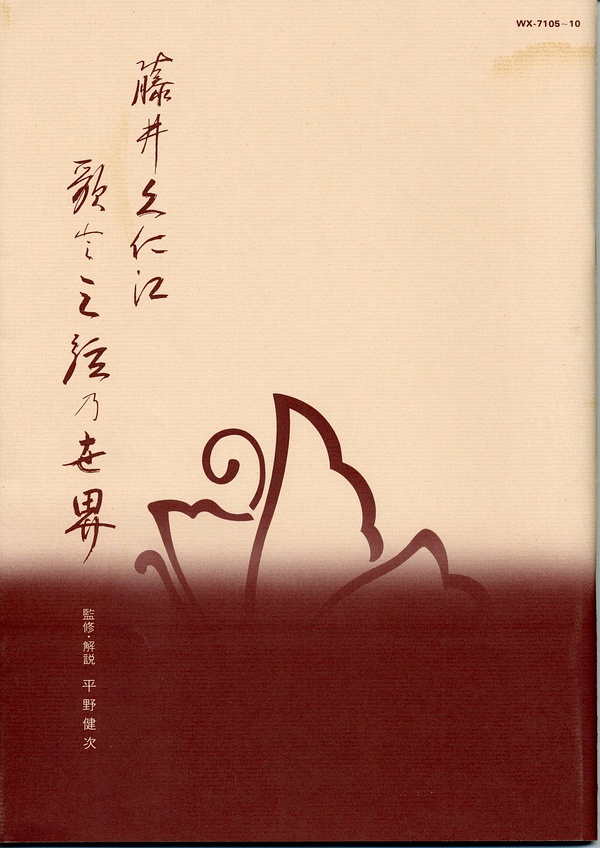 WX-7105~10
藤井久仁江
歌と三弦乃世界
監修・解説 平野健次